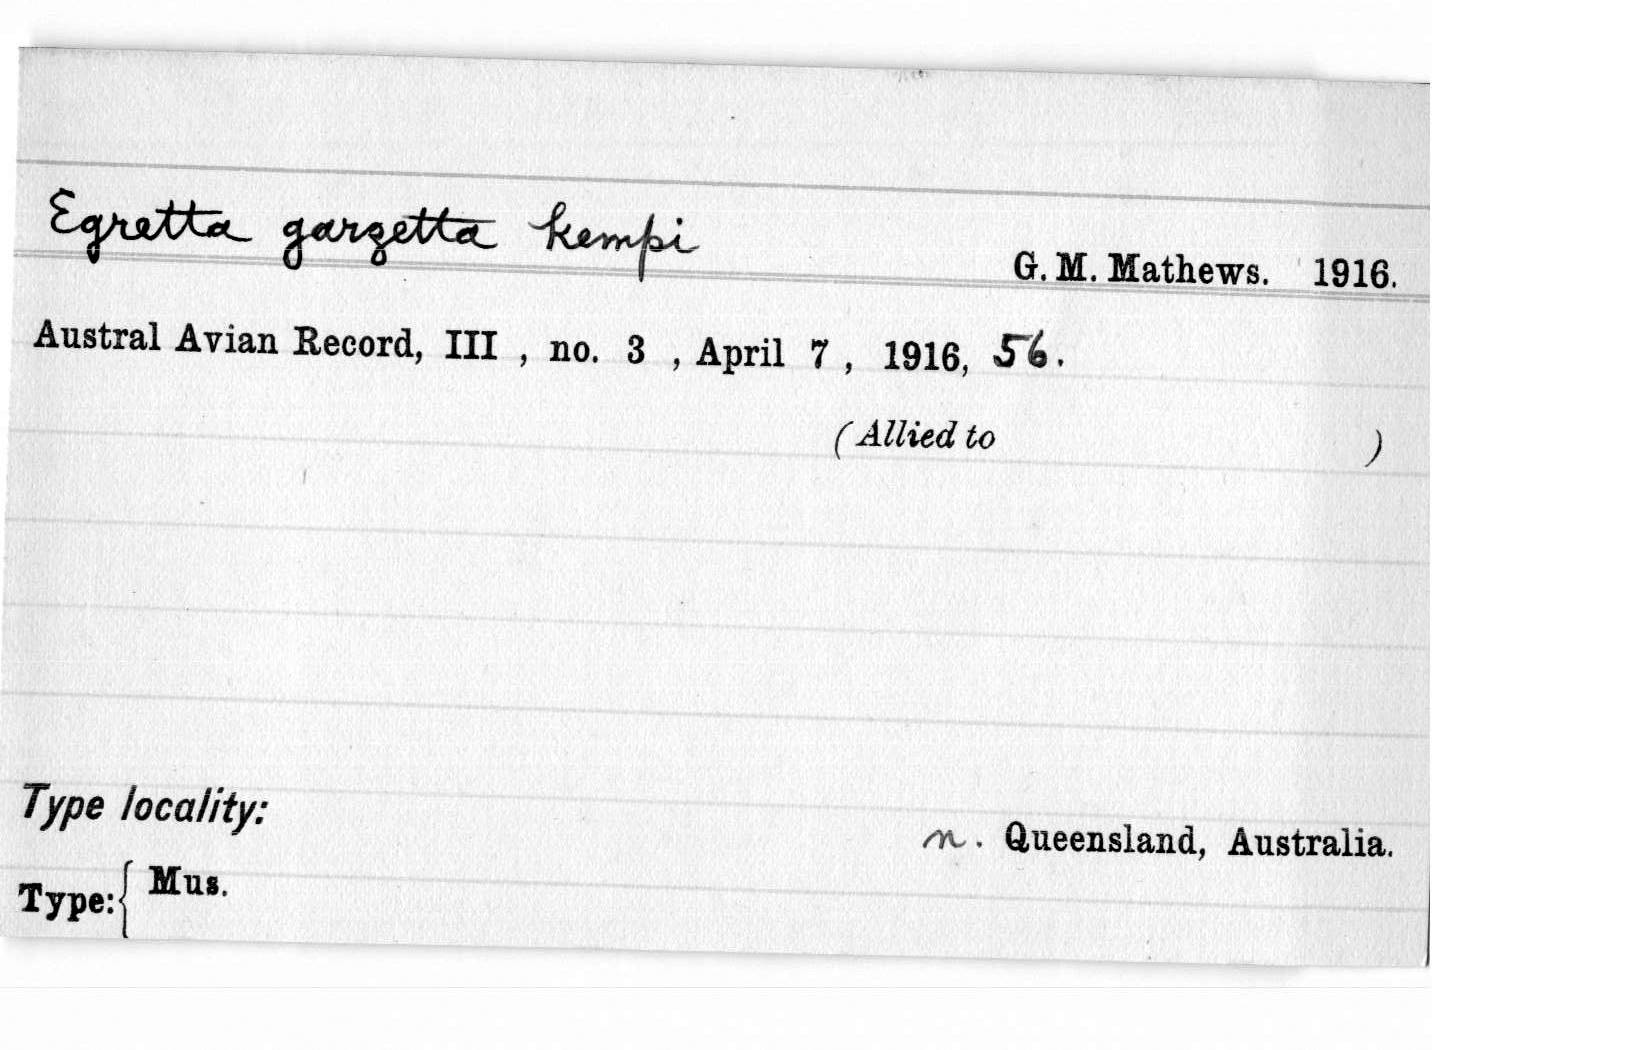 Egretta garzetta kempi
G. M. Mathews. 1916.
Austral Avian Record, III , no. 3 , April 7 , 1916, 56.
(Allied to )
Type locality:
n. Queensland, Australia.
Type: { Mus.